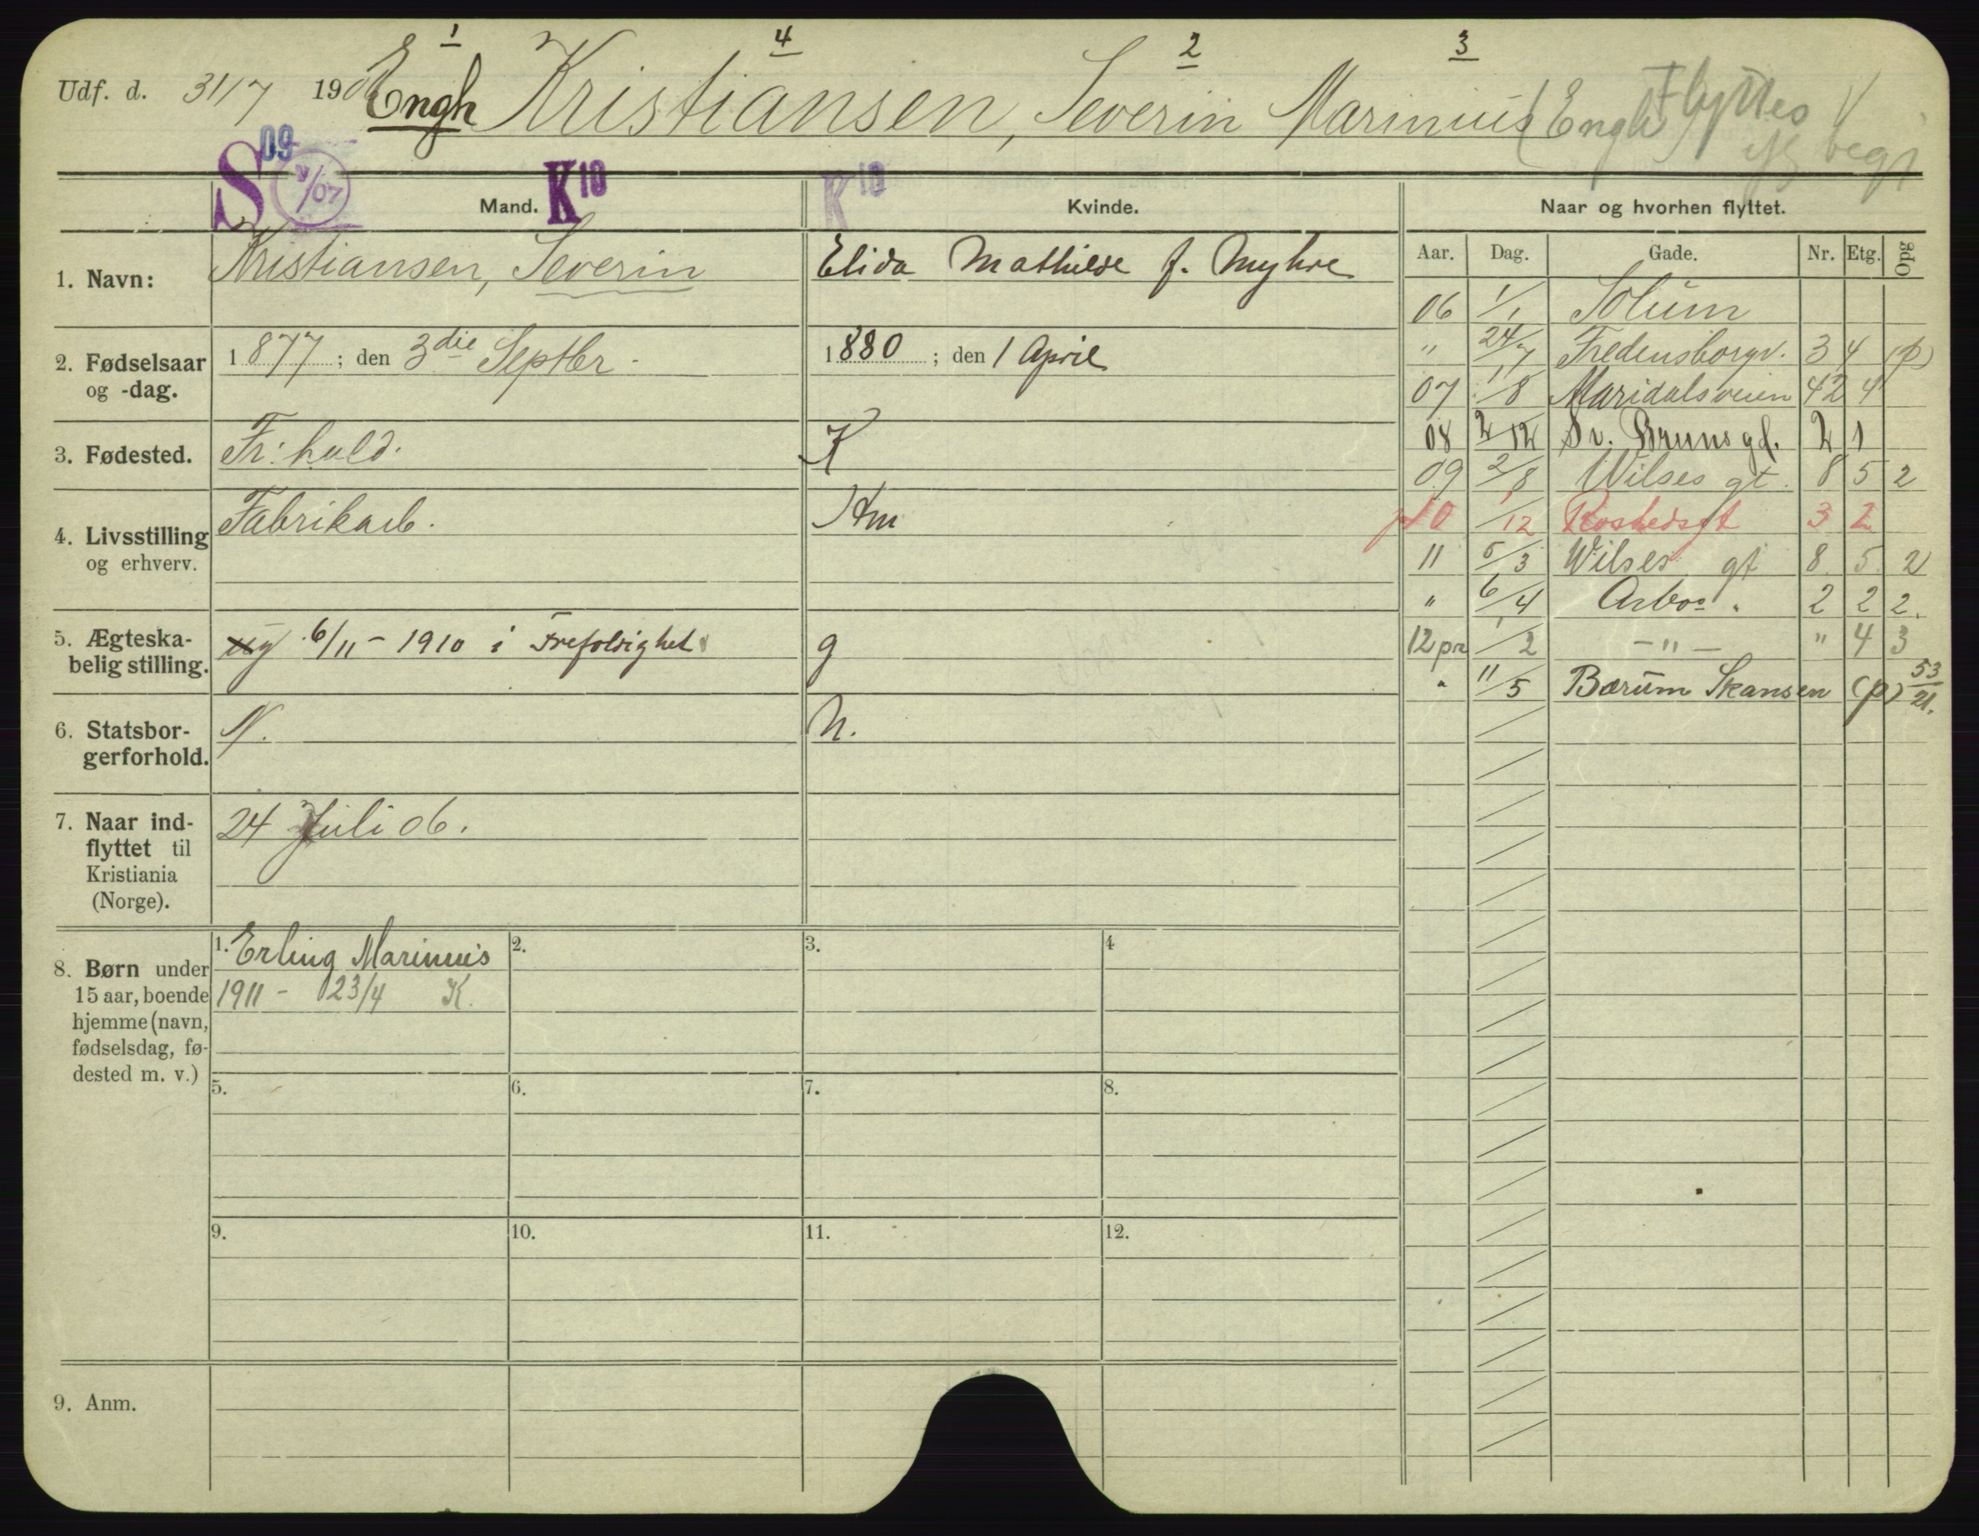 1 4 2 3
Udf. d. 31/7 1906 Engh Kristiansen, Severin Marinius (Engh) Flyttes
S 09 /07 Mand. K10 K10 Kvinde. Naar og hvorhen flyttet.
Aar. Dag. Gade. Nr. Etg. Opg
1. Navn: Kristiansen, Severin Elida Mathilde f. Myhre
2. Fødselsaar 1877; den 3die Septbr. 1880; den 1 April
og -dag.
3. Fødested. Fr:hald. K
4. Livsstilling Fabrikarb. Hm
og erhverv.
5. Ægteska- ug 6/11 - 1910 i Trefoldighet g
belig stilling.
6. Statsbor- N. N.
gerforhold.
7. Naar ind- 24 Juli 06.
flyttet til
Kristiania
(Norge).
8. Børn under
15 aar, boende
hjemme (navn,
fødselsdag, fø-
dested m. v.)
1. Erling Marinius
1911 - 23/4 K.
2. 3. 4
5. 6. 7. 8.
9. 10. 11. 12.
9. Anm.
06 1/1 Solum
" 24/7 Fredensborgv. 34 (p)
07 1/8 Maridalsveien 42 4
08 2/12 Sv. Brunsgd. 2 1
09 2/8 Wilses gt. 8 5 2
10 1/12 Rostedsgt 3 2
11 5/3 Wilses gt 8 5. 2
" 6/4 Arbos " 2 2 2.
12 pr 1/2 - " - " 4 3
" 11/5 Bærum Skansen (p) 53/21.